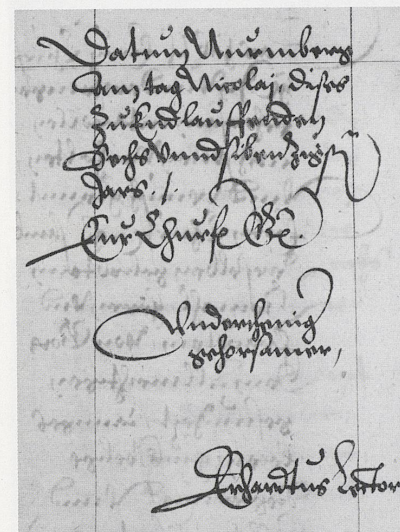 Datum Nurmberg
am tag Nicolaj, dises
zu Endlauffenden
Sechs vnnd sibenzigsten
Jars ./.
Eur Churf. G.
Vnderthenig
gehorsamer,
Erhardtus Lector